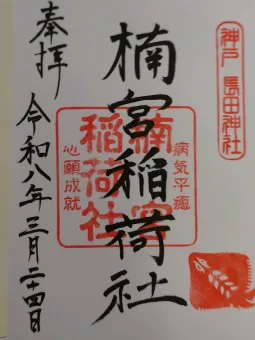 神戸 長田神社
楠宮稲荷社
楠宮
稲荷社
病気平癒
心願成就
奉拝
令和八年三月二十四日